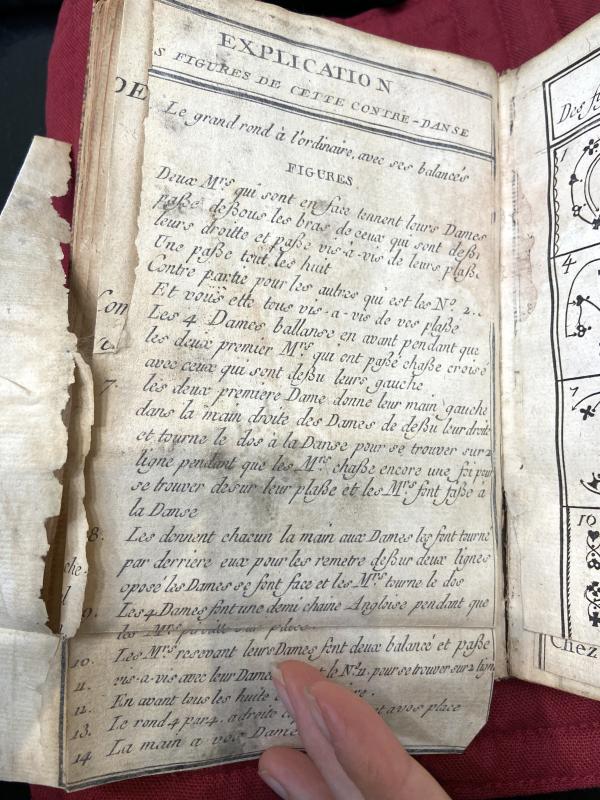 EXPLICATION
S FIGURES DE CETTE CONTRE-DANSE
Le grand rond à l'ordinaire, avec ses balancés
FIGURES
Deux Mrs qui sont en face tennent leurs Dames
paße deßous les bras de ceux qui sont deßu
leurs droitte et paße vis-à-vis de leurs plaße
Une paße tout les huit
Contre partie pour les autres qui est les No. 2.
Et vous ette tous vis-a-vis de vos plaße
Les 4 Dames ballanse en avant pendant que
les deux premier Mrs qui ont paßé chaße croisé
avec ceux qui sont deßu leurs gauche
7. les deux premiere Dame donne leur main gauche
dans la main droite des Dames de deßu leur droit
et tourne le dos à la Danse pour se trouver sur 2
ligne pendant que les Mrs chaße encore une foi pour
se trouver desur leur plaße et les Mrs font faße à
la Danse
8. Les donnent chacun la main aux Dames les font tourné
par derriere eux pour les remetre deßur deux lignes
oposé les Dames se font face et les Mrs tourne le dos
9. Les 4 Dames font une demi chaine Angloise pendant que
les Mrs
10. Les Mrs resevant leurs Dames font deux balancé et paße
11. vis-a-vis avec leur Dame le No. pour se trouver sur 2 lign
12. En avant tous les huite
13. Le rond 4 par 4. a droite et a vos place
14 La main a vos Dame
DE
Con
che.
Des fi
1
4
7
10
Chez